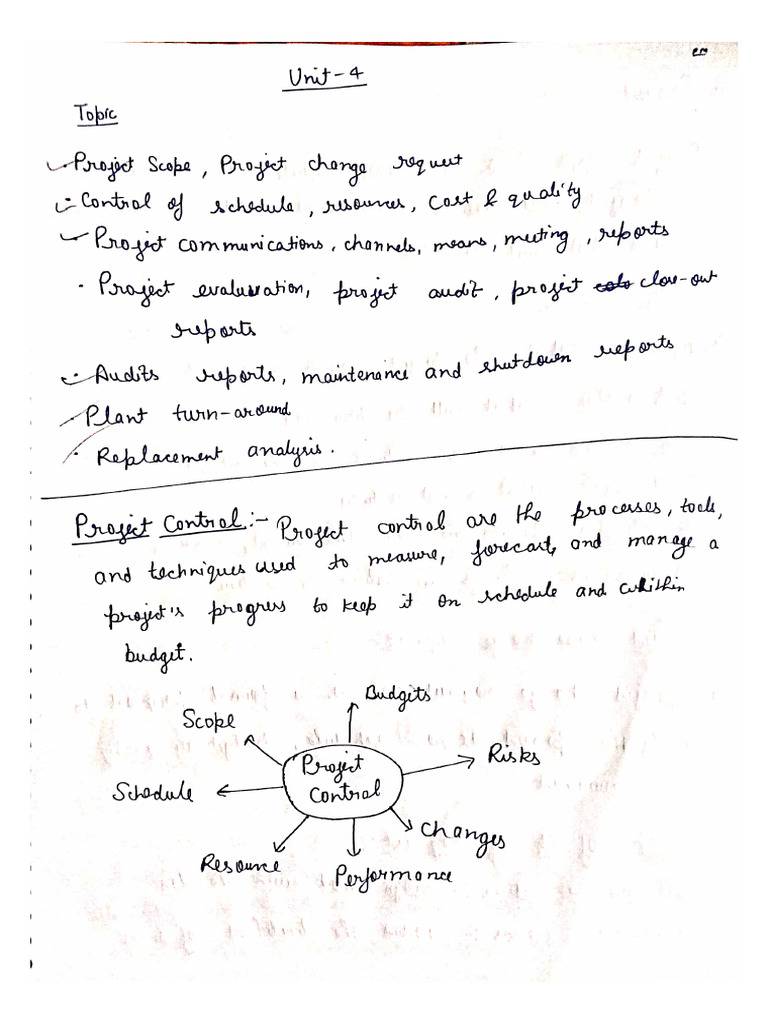 Unit-4
Topic
Project Scope, Project change request
· Control of schedule, resources, Cost & quality
Project communications, channels, means, meeting, reports
· Project evaluation, project audit, project close-out
reports
· Audits reports, maintenance and shutdown reports
Plant turn-around
· Replacement analysis.
Project Control:- Project control are the processes, tools,
and techniques used to measure, forecast, and manage a
project's progress to keep it on schedule and within
budget.
Budgits
Scope
Risks
Project
Control
Schedule
Changes
Resource
Performance